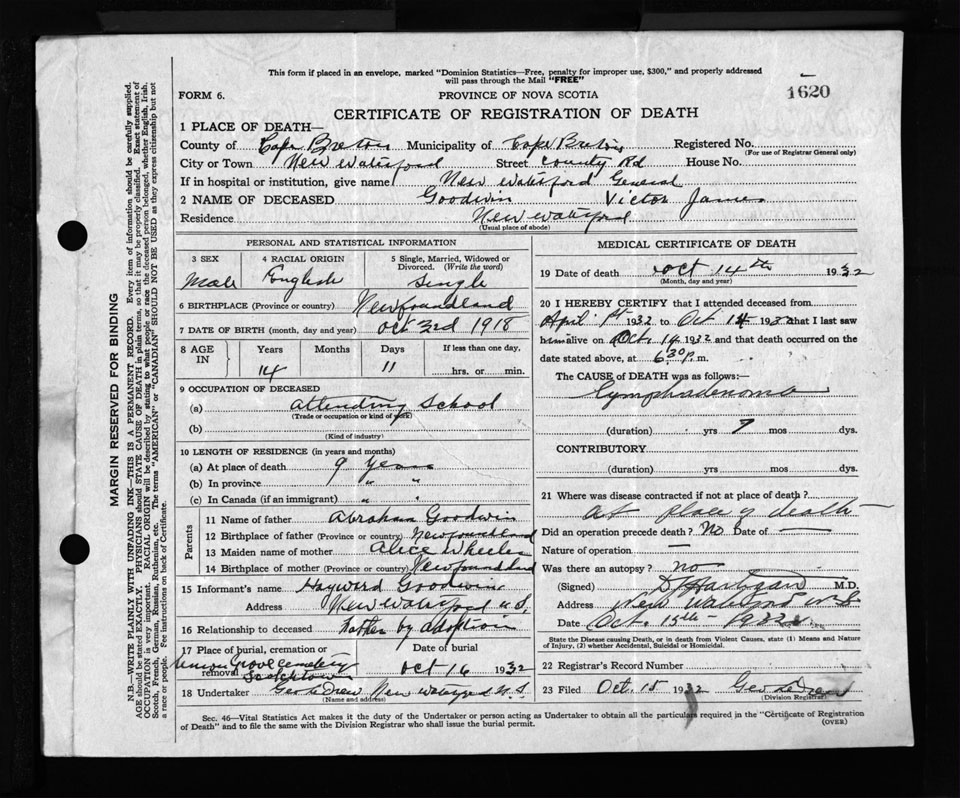 This form if placed in an envelope, marked "Dominion Statistics—Free, penalty for improper use, $300," and properly addressed
will pass through the Mail "FREE"
FORM 6. PROVINCE OF NOVA SCOTIA 1620
CERTIFICATE OF REGISTRATION OF DEATH
1 PLACE OF DEATH—
County of Cape Breton Municipality of Cape Breton Registered No.
(For use of Registrar General only)
City or Town New Waterford Street County Rd House No.
If in hospital or institution, give name New Waterford General
2 NAME OF DECEASED Goodwin Victor James
Residence New Waterford
(Usual place of abode)
PERSONAL AND STATISTICAL INFORMATION
3 SEX 4 RACIAL ORIGIN 5 Single, Married, Widowed or
Divorced. (Write the word)
Male English Single
6 BIRTHPLACE (Province or country) Newfoundland
7 DATE OF BIRTH (month, day and year) Oct 3rd 1918
8 AGE IN Years Months Days If less than one day,
14 11 hrs. or min.
9 OCCUPATION OF DECEASED
(a) Attending School
(Trade or occupation or kind of work)
(b)
(Kind of industry)
10 LENGTH OF RESIDENCE (in years and months)
(a) At place of death 9 Years
(b) In province " "
(c) In Canada (if an immigrant) " "
Parents
11 Name of father Abraham Goodwin
12 Birthplace of father (Province or country) Newfoundland
13 Maiden name of mother Alice Wheeler
14 Birthplace of mother (Province or country) Newfoundland
15 Informant's name Hayward Goodwin
Address New Waterford N.S.
16 Relationship to deceased Father by adoption
17 Place of burial, cremation or removal Date of burial
Union Grove Cemetery
Scotchtown Oct 16 1932
18 Undertaker Geo LeDrew New Waterford N.S.
(Name and address)
MEDICAL CERTIFICATE OF DEATH
19 Date of death Oct 14th 1932
(Month, day and year)
20 I HEREBY CERTIFY that I attended deceased from
April 1st 1932 to Oct 14 1932 that I last saw
him alive on Oct. 14 1932 and that death occurred on the
date stated above, at 6.30 p. m.
The CAUSE of DEATH was as follows:—
Lymphadenoma
(duration) yrs 7 mos dys.
CONTRIBUTORY
(duration) yrs mos dys.
21 Where was disease contracted if not at place of death?
At place of death
Did an operation precede death? No Date of —
Nature of operation —
Was there an autopsy? no
(Signed) D Hartigan M.D.
Address New Waterford N.S.
Date Oct. 15th - 1932
State the Disease causing Death, or in death from Violent Causes, state (1) Means and Nature
of Injury, (2) whether Accidental, Suicidal or Homicidal.
22 Registrar's Record Number
23 Filed Oct. 15 1932 Geo LeDrew
(Division Registrar)
Sec. 46—Vital Statistics Act makes it the duty of the Undertaker or person acting as Undertaker to obtain all the particulars required in the "Certificate of Registration
of Death" and to file the same with the Division Registrar who shall issue the burial permit. (OVER)
MARGIN RESERVED FOR BINDING
N.B.—WRITE PLAINLY WITH UNFADING INK—THIS IS A PERMANENT RECORD. Every item of information should be carefully supplied.
AGE should be stated EXACTLY. PHYSICIANS should STATE CAUSE OF DEATH in plain terms, so that it may be properly classified. Exact statement of
OCCUPATION is very important. RACIAL ORIGIN will be described by stating to what people or race the deceased person belonged, whether English, Irish,
Scotch, French, German, Russian, Ruthenian, etc. The terms "AMERICAN" or "CANADIAN" SHOULD NOT BE USED as they express citizenship but not
a race or people. Fee instructions on back of Certificate.